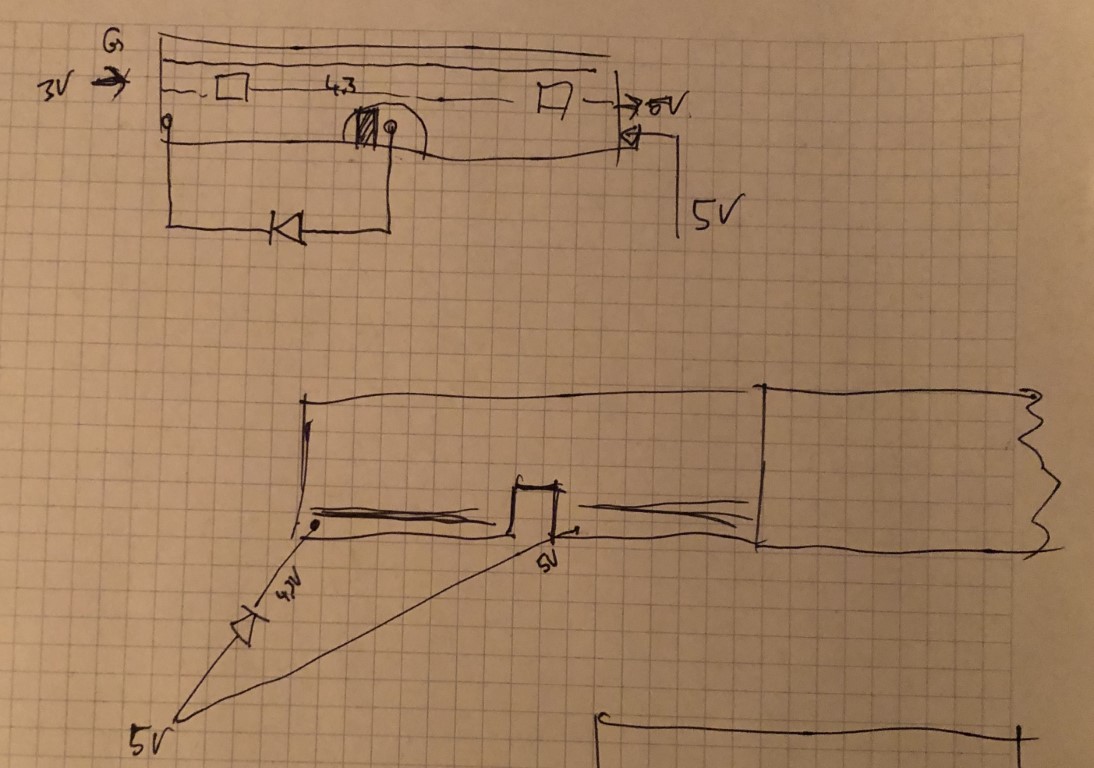 G
3V
4.3
5V
5V
5V
5V